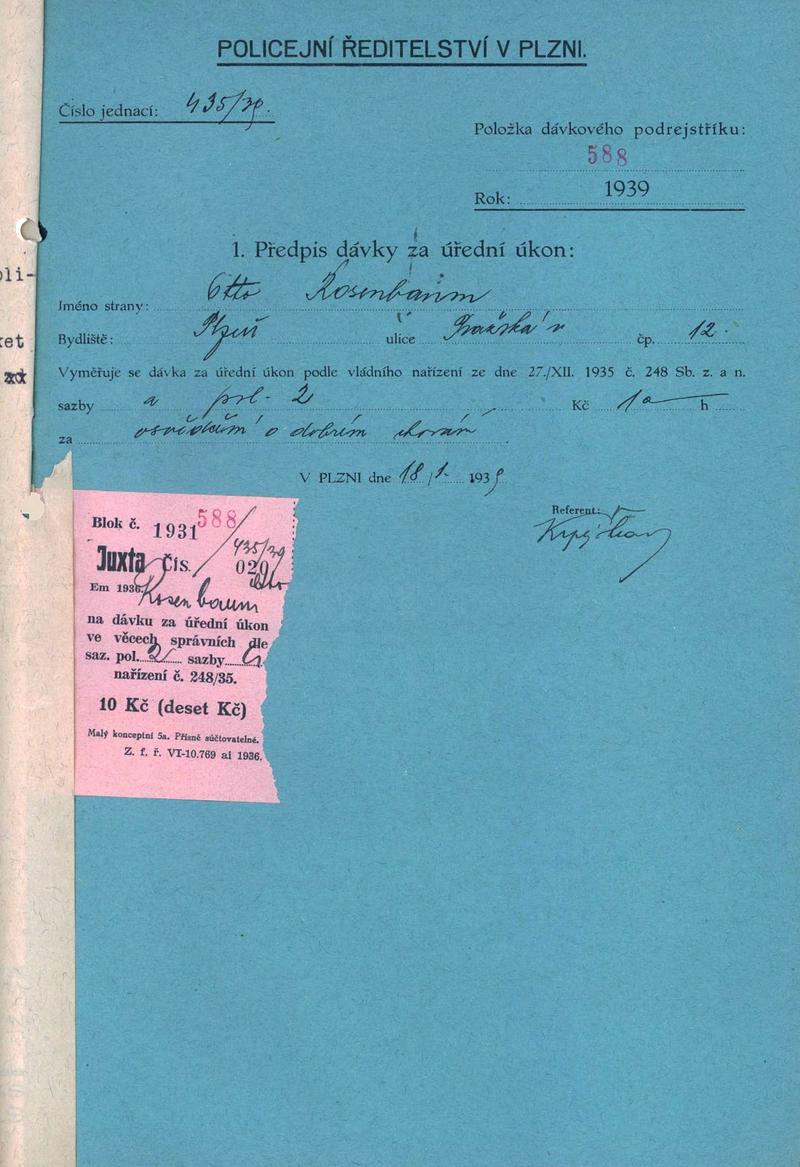 POLICEJNÍ ŘEDITELSTVÍ V PLZNI.
Číslo jednací: 435/39.
Položka dávkového podrejstříku:
588
Rok: 1939
1. Předpis dávky za úřední úkon:
Jméno strany: Otto Rosenbaum
Bydliště: Plzeň ulice Pražská čp. 12.
Vyměřuje se dávka za úřední úkon podle vládního nařízení ze dne 27./XII. 1935 č. 248 Sb. z. a n.
sazby a pol. 2 Kč 10 h
za osvědčení o dobrém chování
V PLZNI dne 18/1. 1939
Referent:
oli-
ket
Blok č. 1931 588
435/39
Juxta Čís. 020
Em 1936. Otto
Rosenbaum
na dávku za úřední úkon
ve věcech správních dle
saz. pol. 2 sazby a
nařízení č. 248/35.
10 Kč (deset Kč)
Malý konceptní 5a. Přísně súčtovatelné.
Z. f. ř. VI-10.769 ai 1936.